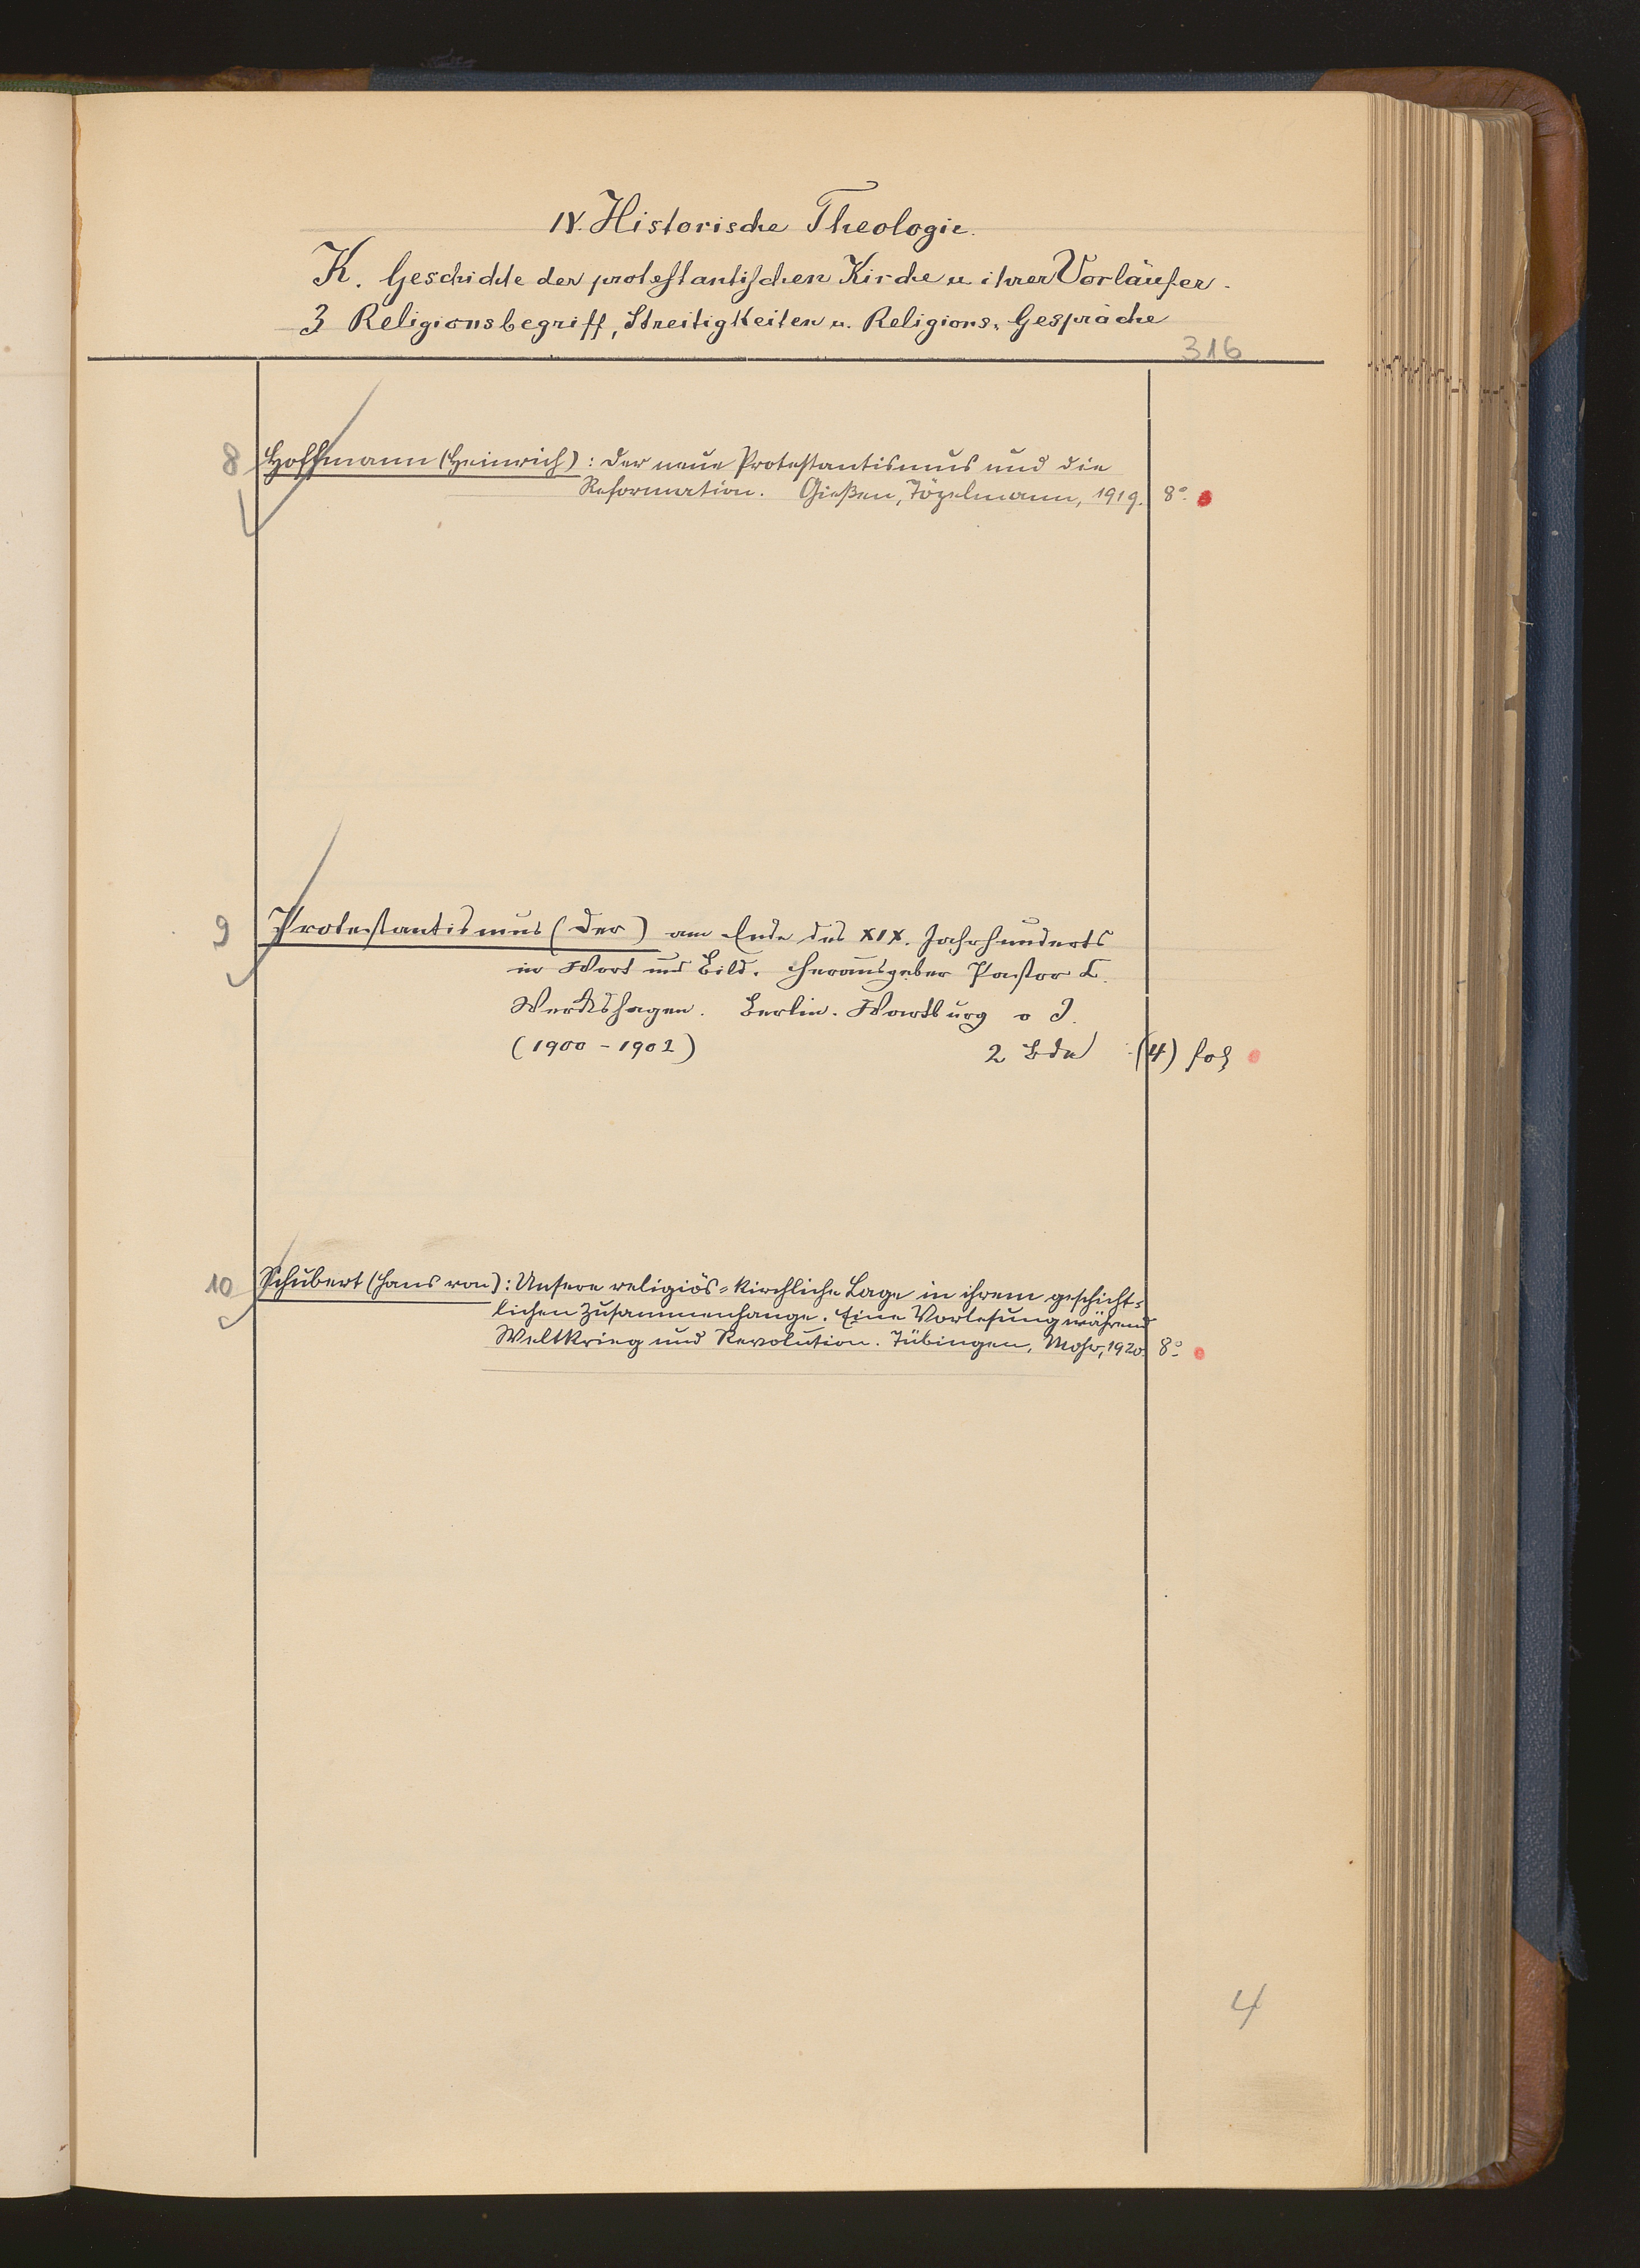 IV. Historische Theologie.
K. Geschichte der protestantischen Kirche u ihrer Vorläufer.
3 Religionsbegriff, Streitigkeiten u. Religions-Gespräche
316
8 Hoffmann (Heinrich): Der neue Protestantismus und die
Reformation. Gießen, Töpelmann, 1919. 8°.
9 Protestantismus (Der) am Ende des XIX. Jahrhunderts
in Wort und Bild. Herausgeber Pastor C.
Werckshagen. Berlin. Wartburg o J.
(1900-1902) 2 Bde (4) fol
10 Schubert (Hans von): Unsere religiös-kirchliche Lage in ihrem geschicht-
lichen Zusammenhange. Eine Vorlesung während
Weltkrieg und Revolution. Tübingen, Mohr, 1920. 8°
4